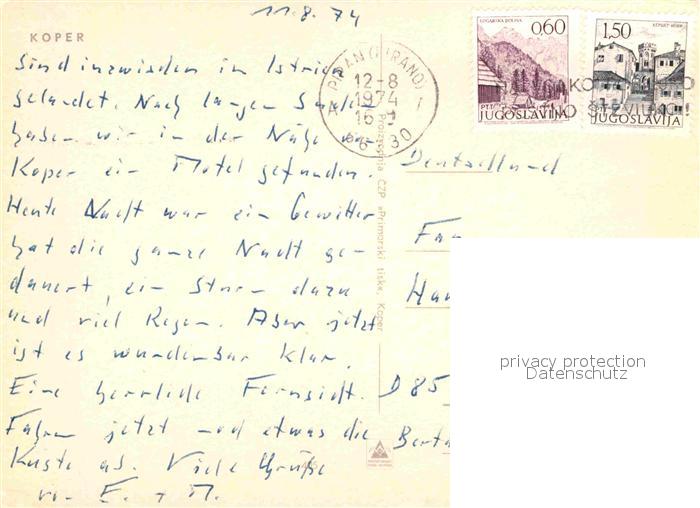 11.8.74
KOPER
Sind inzwischen in Istrien
gelandet. Nach langem Suchen
haben wir in der Nähe von
Koper ein Motel gefunden.
Heute Nacht war ein Gewitter
hat die ganze Nacht ge-
dauert, ein Sturm dazu
und viel Regen. Aber jetzt
ist es wunderbar klar.
Eine herrliche Fernsicht.
Fahren jetzt noch etwas die
Küste ab. Viele Grüße
von E. + M.
PIRAN (PIRANO)
12-8
1974
16-
66330
0.60
JUGOSLAVIJA
1.50
JUGOSLAVIJA
Proizvodnja ČZP »Primorski tisk«, Koper
Deutschland
Fa
Han
D 85
Berta
privacy protection
Datenschutz